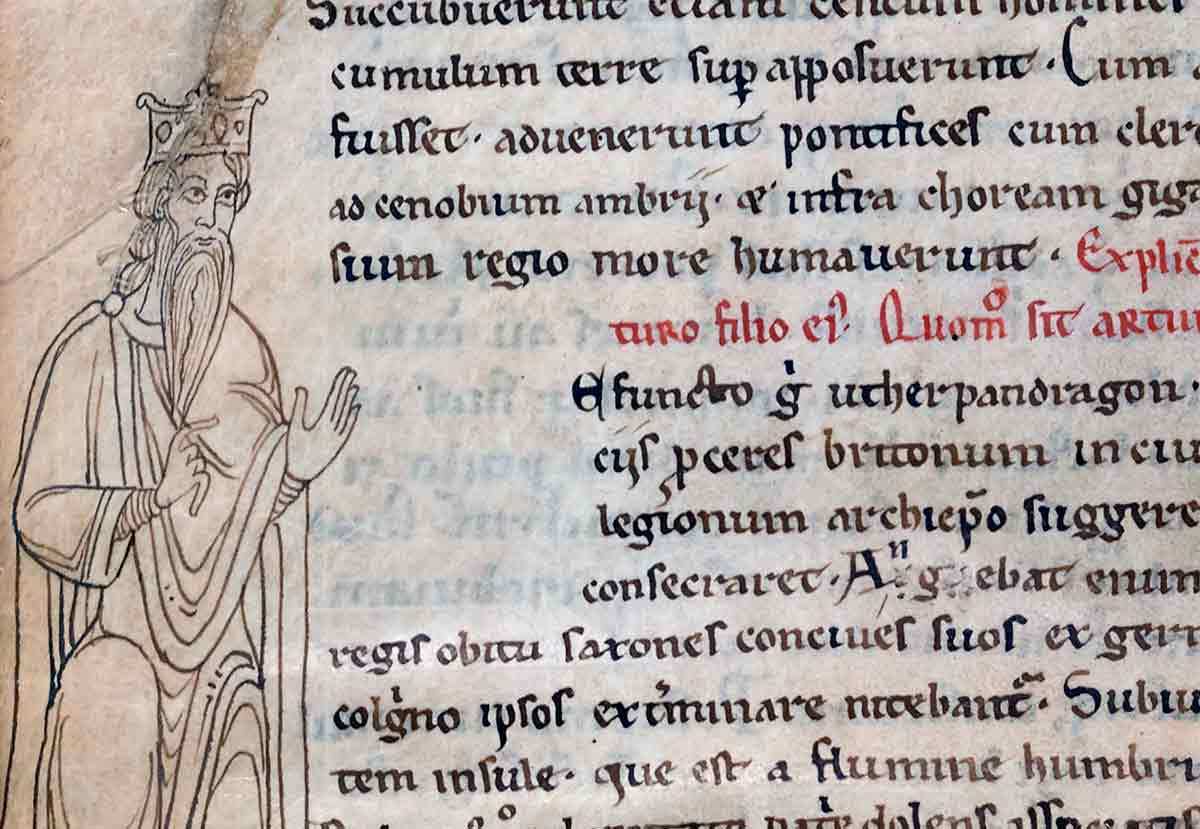 Succubuerunt etiam centum homines
cumulum terre sup̱ apposuerunt. Cum
fuisset. aduenerunt pontifices cum cler
ad cenobium ambrij. & infra choream giga
suum regio more humauerunt. Explic̄
turo filio eiꝰ. Quom̊ sit artu
Efuncto gͥ utherpandragon.
ciis ꝓceres britonum in ciu
legionum archiep̄o suggere
consecraret. Angebat enim
regis obitu saxones conciues suos ex ger
colgͥno ipsos exͭminare nitebant᷑. Subiu
tem insule. que est a flumine humbri
dolens